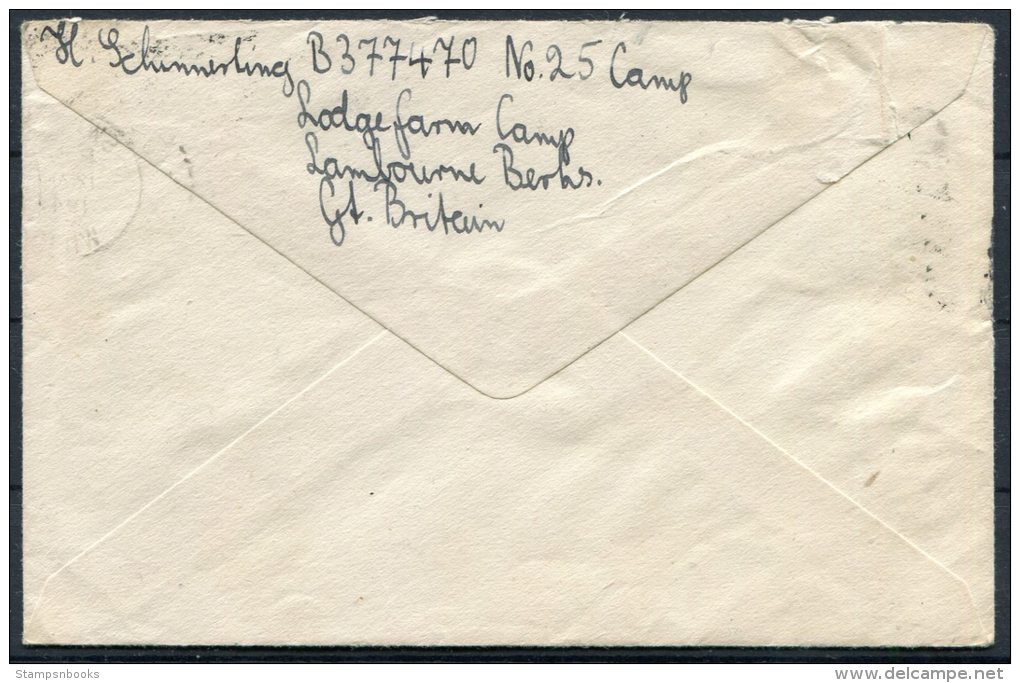 H. Schimmerling B377470 No. 25 Camp
Lodgefarm Camp
Lambourne Berks.
Gt. Britain
Stampsnbooks
delcampe.net